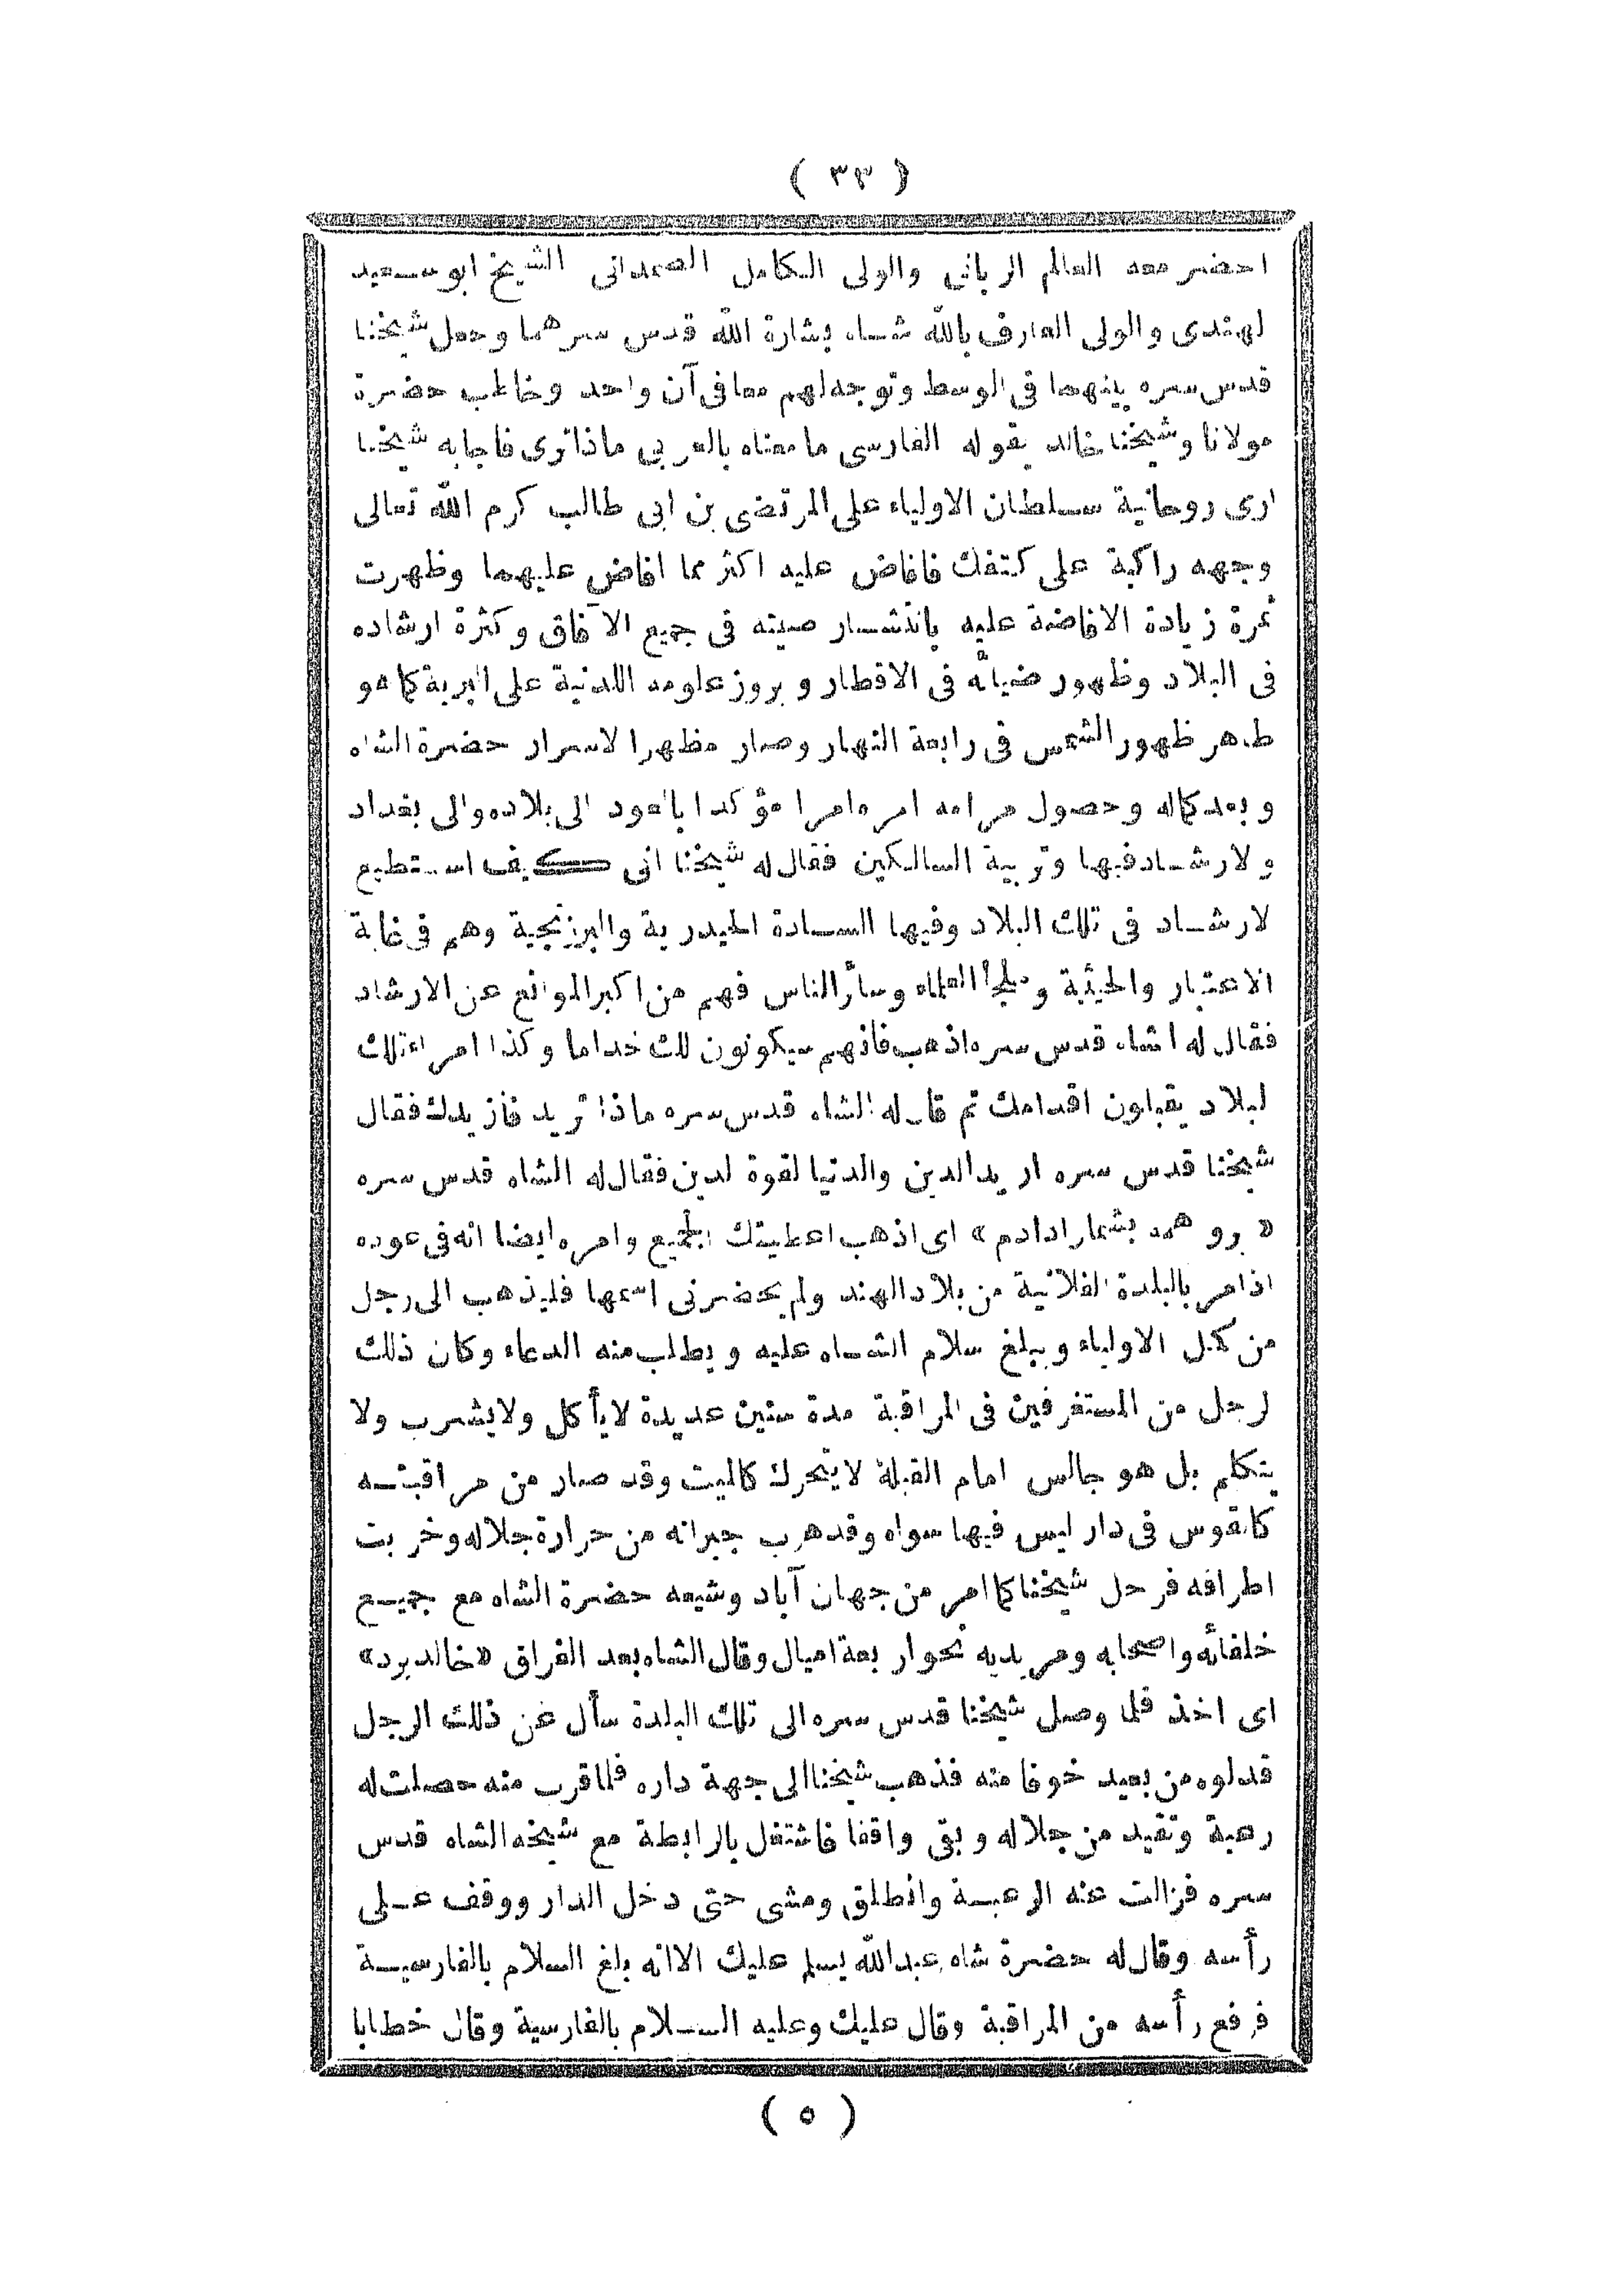 ( ٣٣ )
احضر معه العالم الربانى والولى الكامل الصمدانى الشيخ ابو سعيد
لهندى والولى العارف بالله شاه بشارة الله قدس سرهما وجعل شيخنا
قدس سره بينهما فى الوسط وتوجه لهم معا فى آن واحد وخاطب حضرة
مولانا وشيخنا خالد بقوله الفارسى ما معناه بالعربى ماذا ترى فاجابه شيخنا
ارى روحانية سلطان الاولياء على المرتضى بن ابى طالب كرم الله تعالى
وجهه راكبة على كتفك فافاض عليه اكثر مما افاض عليهما وظهرت
ثمرة زيادة الافاضة عليه بانتشار صيته فى جميع الآفاق وكثرة ارشاده
فى البلاد وظهور ضيائه فى الاقطار وبروز علومه اللدنية على البرية كما هو
ظاهر ظهور الشمس فى رابعة النهار وصار مظهرا لاسرار حضرة الشاه
وبعد كماله وحصول مرامه امره امرا مؤكدا بالعود الى بلاده والى بغداد
ولارشاد فيها وتربية السالكين فقال له شيخنا انى كيف استطيع
لارشاد فى تلك البلاد وفيها السادة الحيدرية والبرزنجية وهم فى غاية
الاعتبار والحيثية وملجأ العلماء وسائر الناس فهم من اكبر الموانع عن الارشاد
فقال له الشاه قدس سره اذهب فانهم سيكونون لك خداما وكذا امراء تلك
لبلاد يقبلون اقدامك ثم قال له الشاه قدس سره ماذا تريد فازيدك فقال
شيخنا قدس سره اريد الدين والدنيا لقوة لدين فقال له الشاه قدس سره
« برو همه بشمارا دادم » اى اذهب اعطيتك الجميع وامره ايضا انه فى عوده
اذا مر بالبلدة الفلانية من بلاد الهند ولم يحضرنى اسمها فليذهب الى رجل
من كمل الاولياء ويبلغ سلام الشاه عليه ويطلب منه الدعاء وكان ذلك
لرجل من المستغرقين فى المراقبة مدة سنين عديدة لا يأكل ولا يشرب ولا
يتكلم بل هو جالس امام القبلة لا يتحرك كالميت وقد صار من مراقبته
كالقوس فى دار ليس فيها سواه وقد هرب جيرانه من حرارة جلاله وخربت
اطرافه فرحل شيخنا كما امر من جهان آباد وشيعه حضرة الشاه مع جميع
خلفائه واصحابه ومريديه نحو اربعة اميال وقال الشاه بعد الفراق «خالد برد»
اى اخذ فلما وصل شيخنا قدس سره الى تلك البلدة سأل عن ذلك الرجل
فدلوه من بعيد خوفا منه فذهب شيخنا الى جهة داره فلما قرب منه حصلت له
رعبة وتقيد من جلاله وبقى واقفا فاشتغل بالرابطة مع شيخه الشاه قدس
سره فزالت عنه الرعبة وانطلق ومشى حتى دخل الدار ووقف على
رأسه وقال له حضرة شاه عبدالله يسلم عليك الا انه بلغ السلام بالفارسية
فرفع رأسه من المراقبة وقال عليك وعليه السلام بالفارسية وقال خطابا
( ٥ )